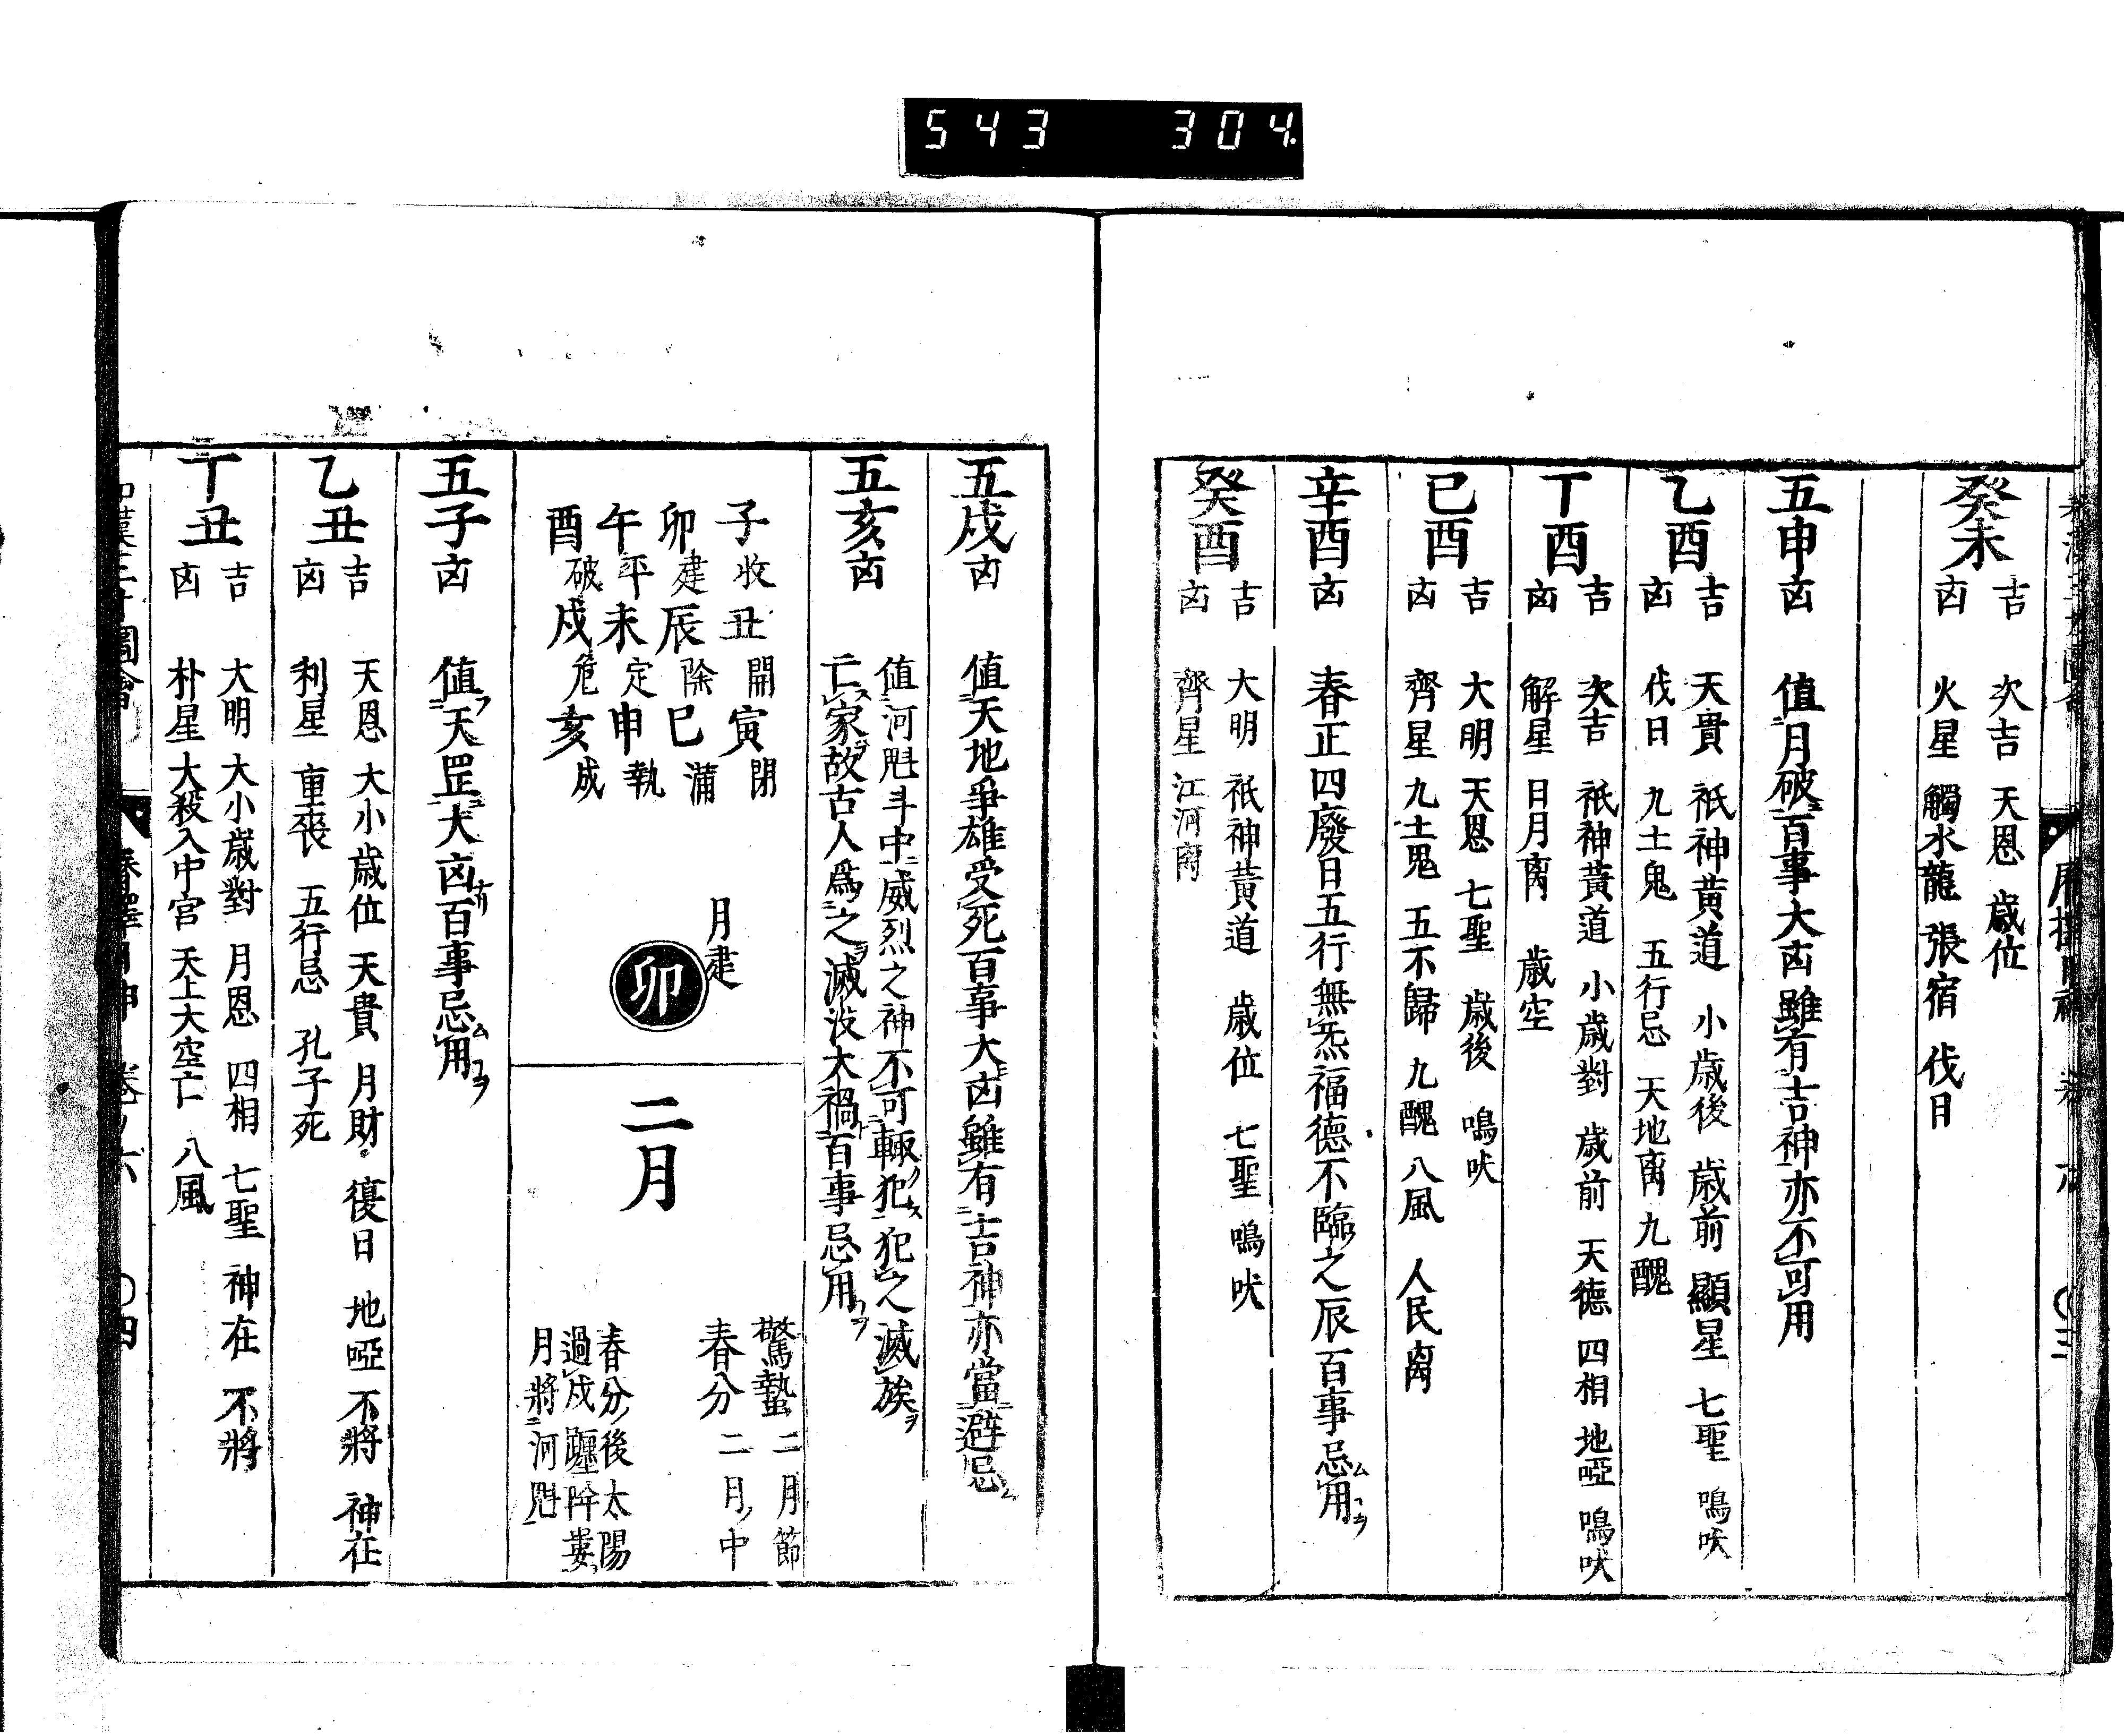 543 304.
癸未 吉 次吉 天恩 歲位
凶 火星 觸水龍 張宿 伐日
五申 凶 值月破百事大凶雖有吉神亦不可用
乙酉 吉 天貴 祇神黃道 小歲後 歲前 顯星 七聖 鳴吠
凶 伐日 九土鬼 五行忌 天地离 九醜
丁酉 吉 次吉 祇神黃道 小歲對 歲前 天德 四相 地啞 鳴吠
凶 解星 日月离 歲空
己酉 吉 大明 天恩 七聖 歲後 鳴吠
凶 齊星 九土鬼 五不歸 九醜 八風 人民离
辛酉 凶 春正四廢日五行無炁福德不臨之辰百事忌用
癸酉 吉 大明 祇神黃道 歲位 七聖 鳴吠
凶 齊星 江河离
五戌 凶 值天地爭雄受死百事大凶雖有吉神亦當避忌
五亥 凶 值河魁斗中威烈之神不可輙犯犯之滅族
亡家故古人爲之滅沒大禍百事忌用
子收 丑開 寅閉
卯建 辰除 巳滿
午平 未定 申執
酉破 戌危 亥成
月建
卯
二月
驚蟄二月節
春分二月中
春分後太陽
過戌躔降婁
月將河魁
五子 凶 值天罡大凶百事忌用
乙丑 吉 天恩 大小歲位 天貴 月財 復日 地啞 不將 神在
凶 利星 重喪 五行忌 孔子死
丁丑 吉 大明 大小歲對 月恩 四相 七聖 神在 不將
凶 朴星 大殺入中宮 天上大空亡 八風